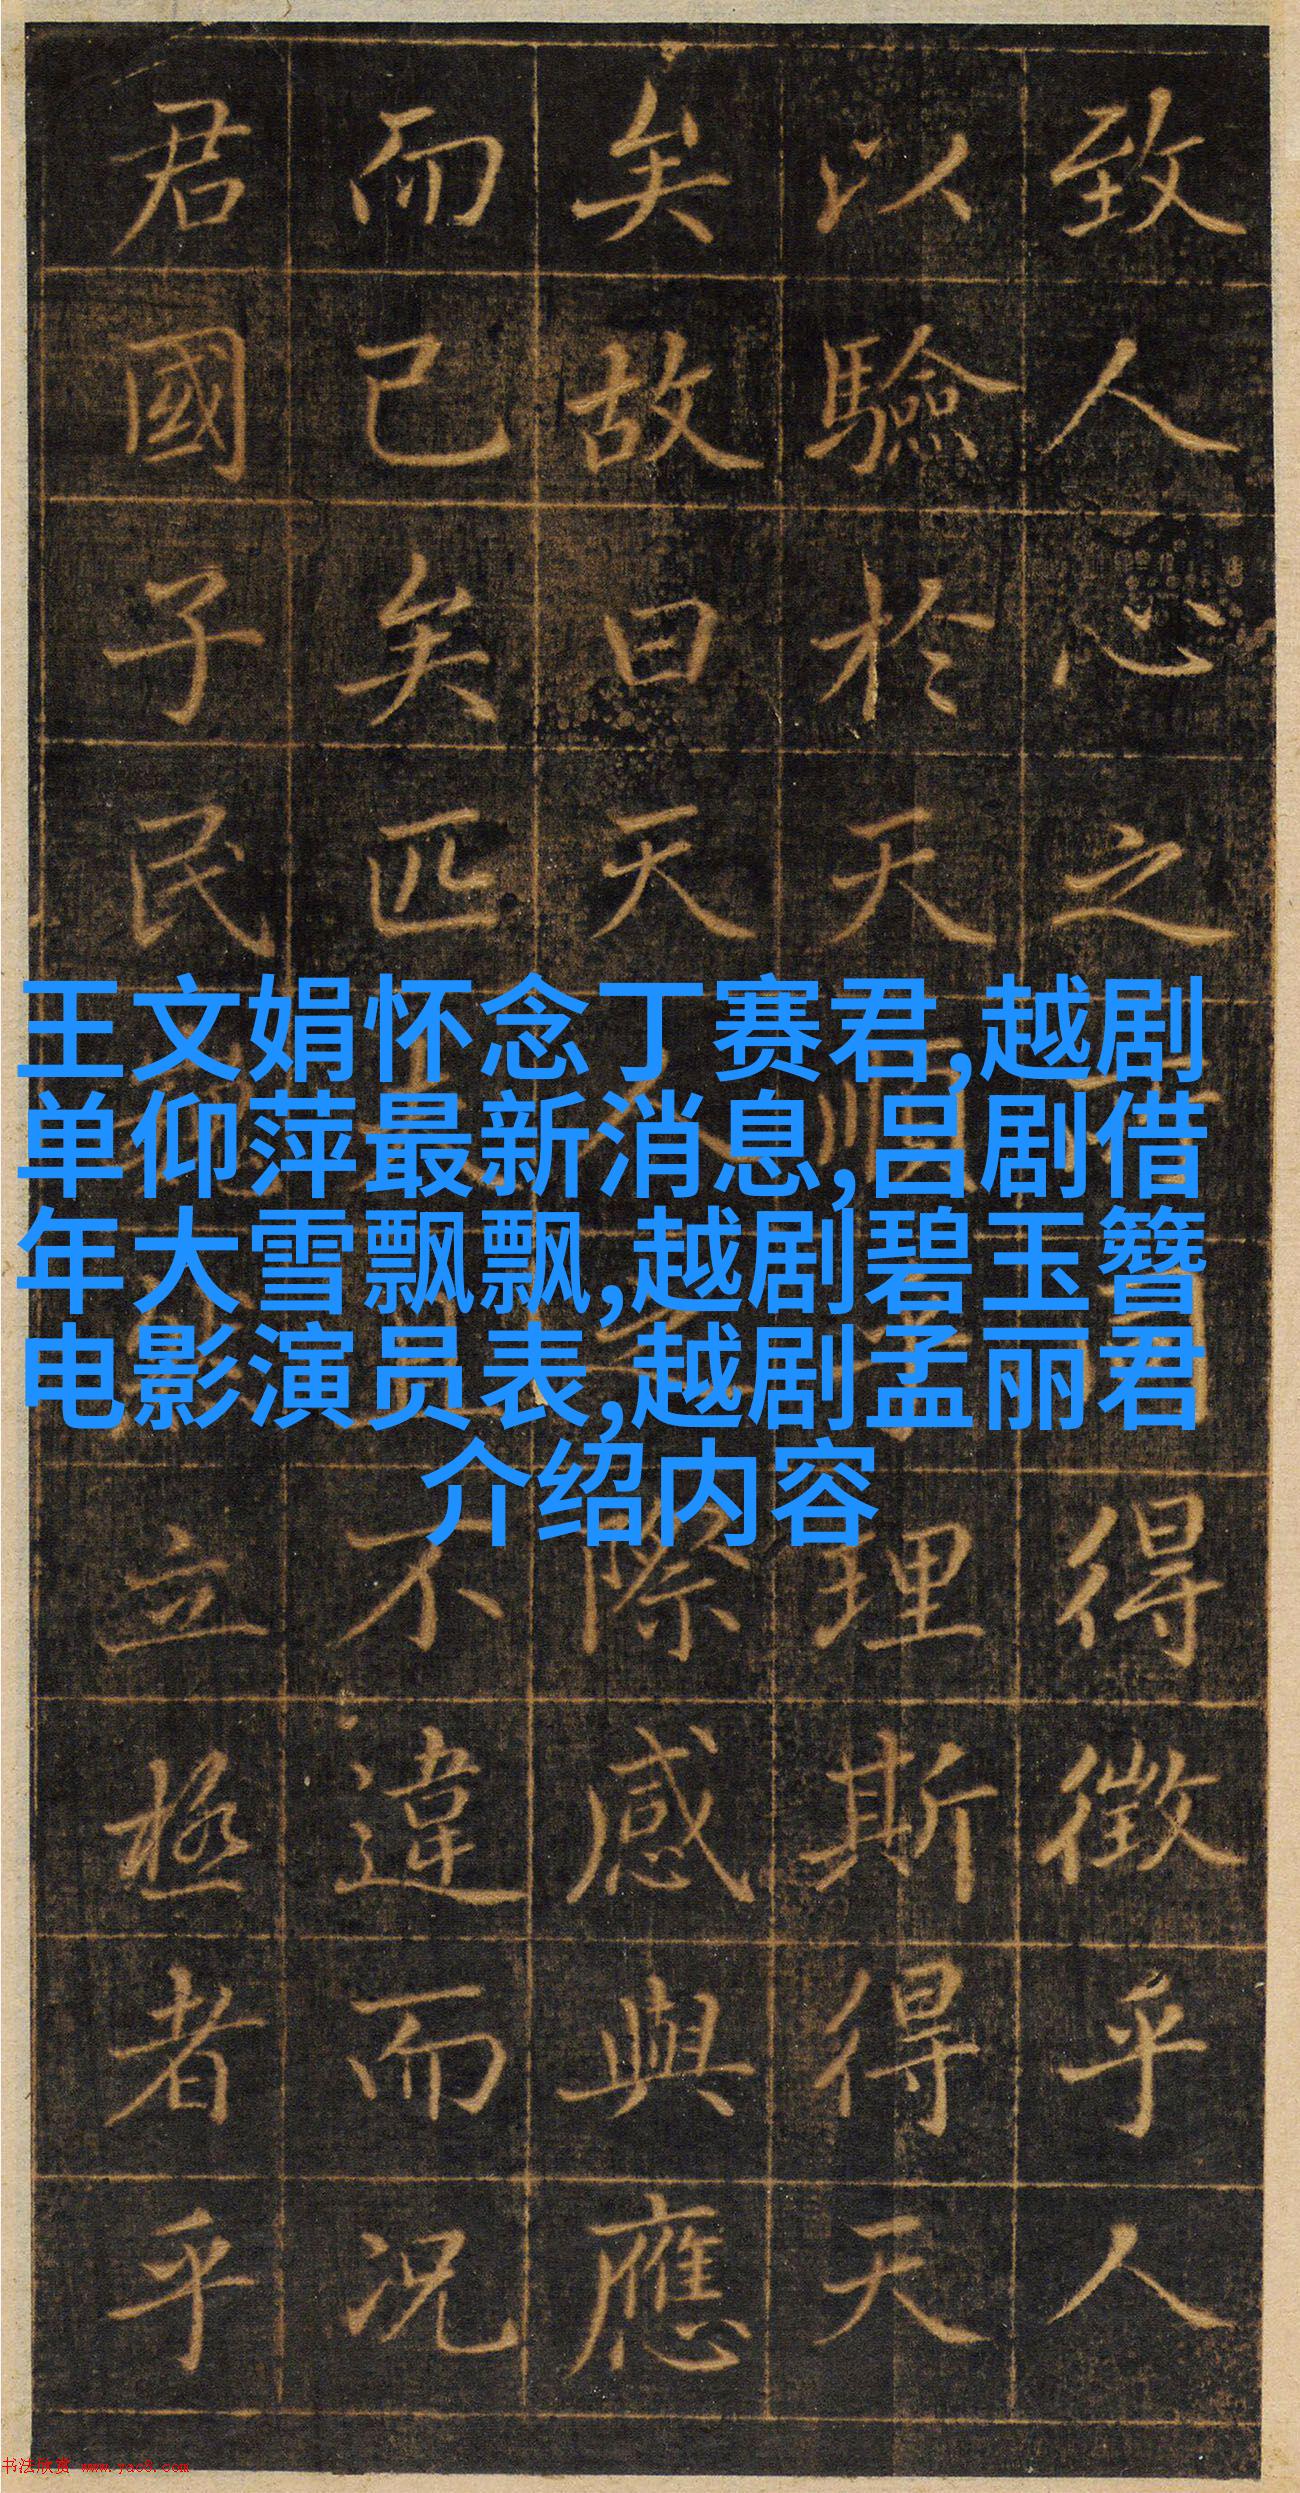 致人心之得徵乎人
以驗於天理斯得天
矣故曰天際感與應
而已矣匹不違而況
君國子民立極者乎
王文娟怀念丁赛君,越剧
单仰萍最新消息,吕剧借
年大雪飘飘,越剧碧玉簪
电影演员表,越剧孟丽君
介绍内容
书法欣赏 www.yac8.com